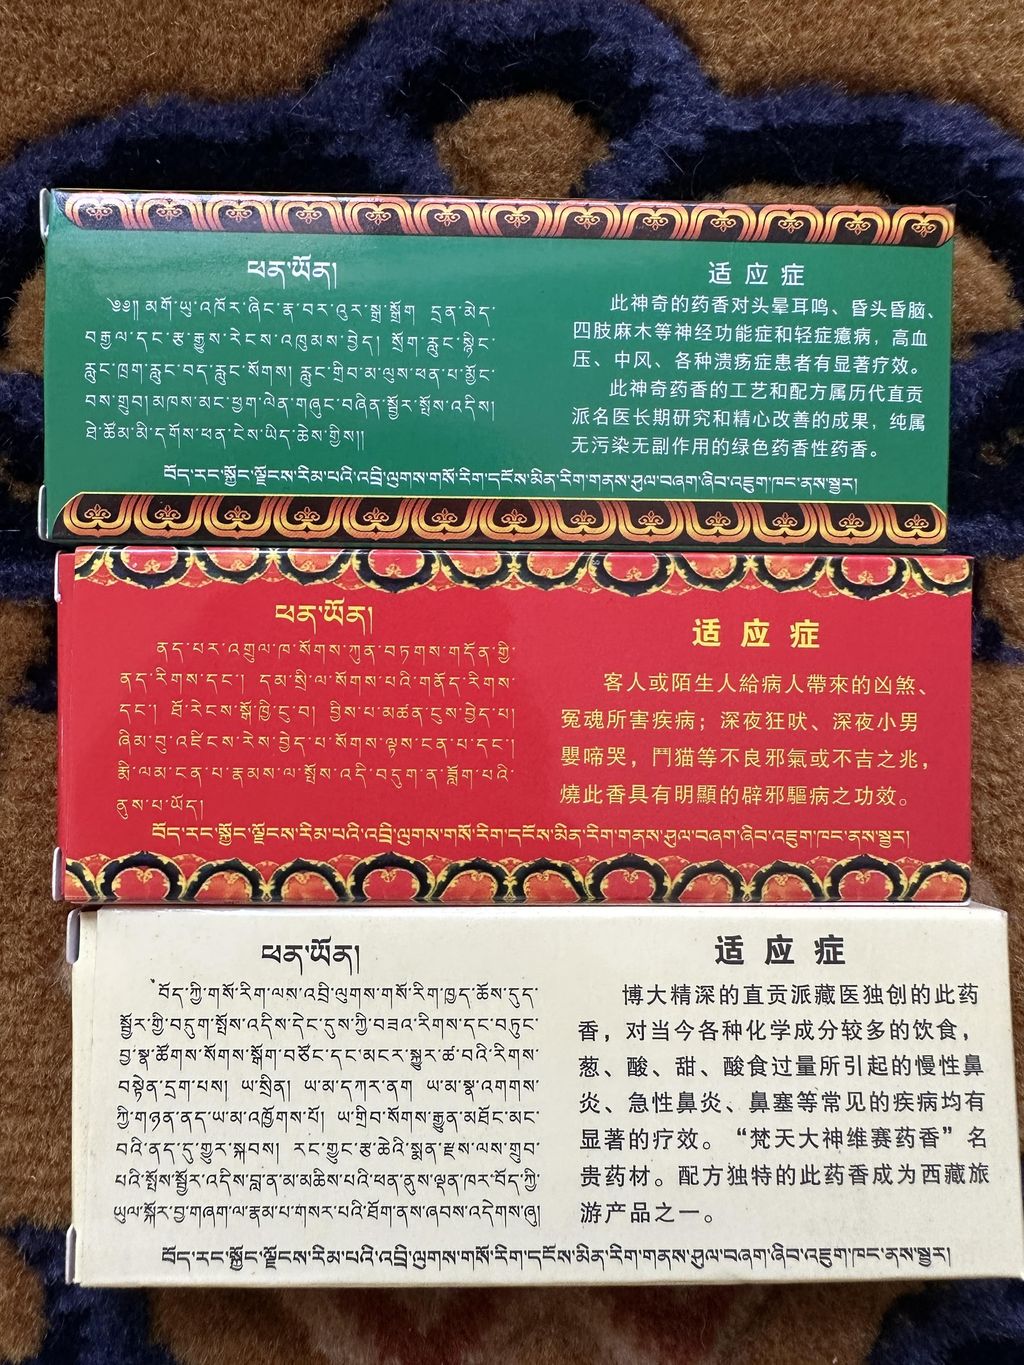 ཕན་ཡོན།
༄༅།། མགོ་ཡུ་འཁོར་ཞིང་རྣ་བར་འུར་སྒྲ་སྒྲོག དྲན་མེད་
བརྒྱལ་དང་རྩ་རྒྱུས་རེངས་འཁུམས་བྱེད། སྲོག་རླུང་སྙིང་
རླུང་ཁྲག་རླུང་བད་རླུང་སོགས། རླུང་གྲིབ་མ་ལུས་ཕན་པ་མྱོང་
བས་གྲུབ། མཁས་མང་ཕྱག་ལེན་གཞུང་བཞིན་སྦྱོར་སྤོས་འདིས།
ཐེ་ཚོམ་མི་དགོས་ཕན་ངེས་ཡིད་ཆེས་གྱིས།།
适应症
此神奇的药香对头晕耳鸣、昏头昏脑、
四肢麻木等神经功能症和轻症癔病，高血
压、中风、各种溃疡症患者有显著疗效。
此神奇药香的工艺和配方属历代直贡
派名医长期研究和精心改善的成果，纯属
无污染无副作用的绿色药香性药香。
བོད་རང་སྐྱོང་ལྗོངས་རིམ་པའི་འབྲི་ལུགས་གསོ་རིག་དངོས་མིན་རིག་གནས་ཤུལ་བཞག་ཞིབ་འཇུག་ཁང་ནས་སྦྱར།
ཕན་ཡོན།
ནད་པར་འགྲུལ་ཁ་སོགས་ཀུན་བཏགས་གདོན་གྱི་
ནད་རིགས་དང་། དམ་སྲི་ལ་སོགས་པའི་གནོད་རིགས་
དང་། ཐོ་རེངས་སྒོ་ཁྱི་ངུ་བ། བྱིས་པ་མཚན་ངུས་བྱེད་པ།
ཞིམ་བུ་འཛིངས་རེས་བྱེད་པ་སོགས་ལྟས་ངན་པ་དང་།
རྨི་ལམ་ངན་པ་རྣམས་ལ་སྤོས་འདི་བདུག་ན་ཟློག་པའི་
ནུས་པ་ཡོད།
适应症
客人或陌生人給病人帶來的凶煞、
冤魂所害疾病；深夜狂吠、深夜小男
嬰啼哭，鬥猫等不良邪氣或不吉之兆，
燒此香具有明顯的辟邪驅病之功效。
བོད་རང་སྐྱོང་ལྗོངས་རིམ་པའི་འབྲི་ལུགས་གསོ་རིག་དངོས་མིན་རིག་གནས་ཤུལ་བཞག་ཞིབ་འཇུག་ཁང་ནས་སྦྱར།
ཕན་ཡོན།
བོད་ཀྱི་གསོ་རིག་ལས་འབྲི་ལུགས་གསོ་རིག་ཁྱད་ཆོས་དུད་
སྦྱོར་གྱི་བདུག་སྤོས་འདིས་དེང་དུས་ཀྱི་བཟའ་རིགས་དང་བཏུང་
བྱ་སྣ་ཚོགས་སོགས་སྒོག་བཙོང་དང་མངར་སྐྱུར་ཚ་བའི་རིགས་
བསྟེན་དྲག་པས། ཡ་སྲིན། ཡ་མ་དཀར་ནག ཡ་མ་སྣ་འགགས་
ཀྱི་གཉན་ནད་ཡ་མ་འཁྱོགས་པོ། ཡ་གྲིབ་སོགས་རྒྱུན་མཐོང་མང་
བའི་ནད་དུ་གྱུར་སྐབས། རང་གྱུང་རྩ་ཆེའི་སྨན་རྫས་ལས་གྲུབ་
པའི་སྤོས་སྦྱོར་འདིས་བླ་ན་མ་མཆིས་པའི་ཕན་ནུས་ལྡན་ཁར་བོད་ཀྱི་
ཡུལ་སྐོར་བྱ་གཞག་ལ་རྣམ་པ་གསར་པའི་ཐོག་ནས་ཞབས་འདེགས་ཞུ།
适应症
博大精深的直贡派藏医独创的此药
香，对当今各种化学成分较多的饮食，
葱、酸、甜、酸食过量所引起的慢性鼻
炎、急性鼻炎、鼻塞等常见的疾病均有
显著的疗效。“梵天大神维赛药香”名
贵药材。配方独特的此药香成为西藏旅
游产品之一。
བོད་རང་སྐྱོང་ལྗོངས་རིམ་པའི་འབྲི་ལུགས་གསོ་རིག་དངོས་མིན་རིག་གནས་ཤུལ་བཞག་ཞིབ་འཇུག་ཁང་ནས་སྦྱར།